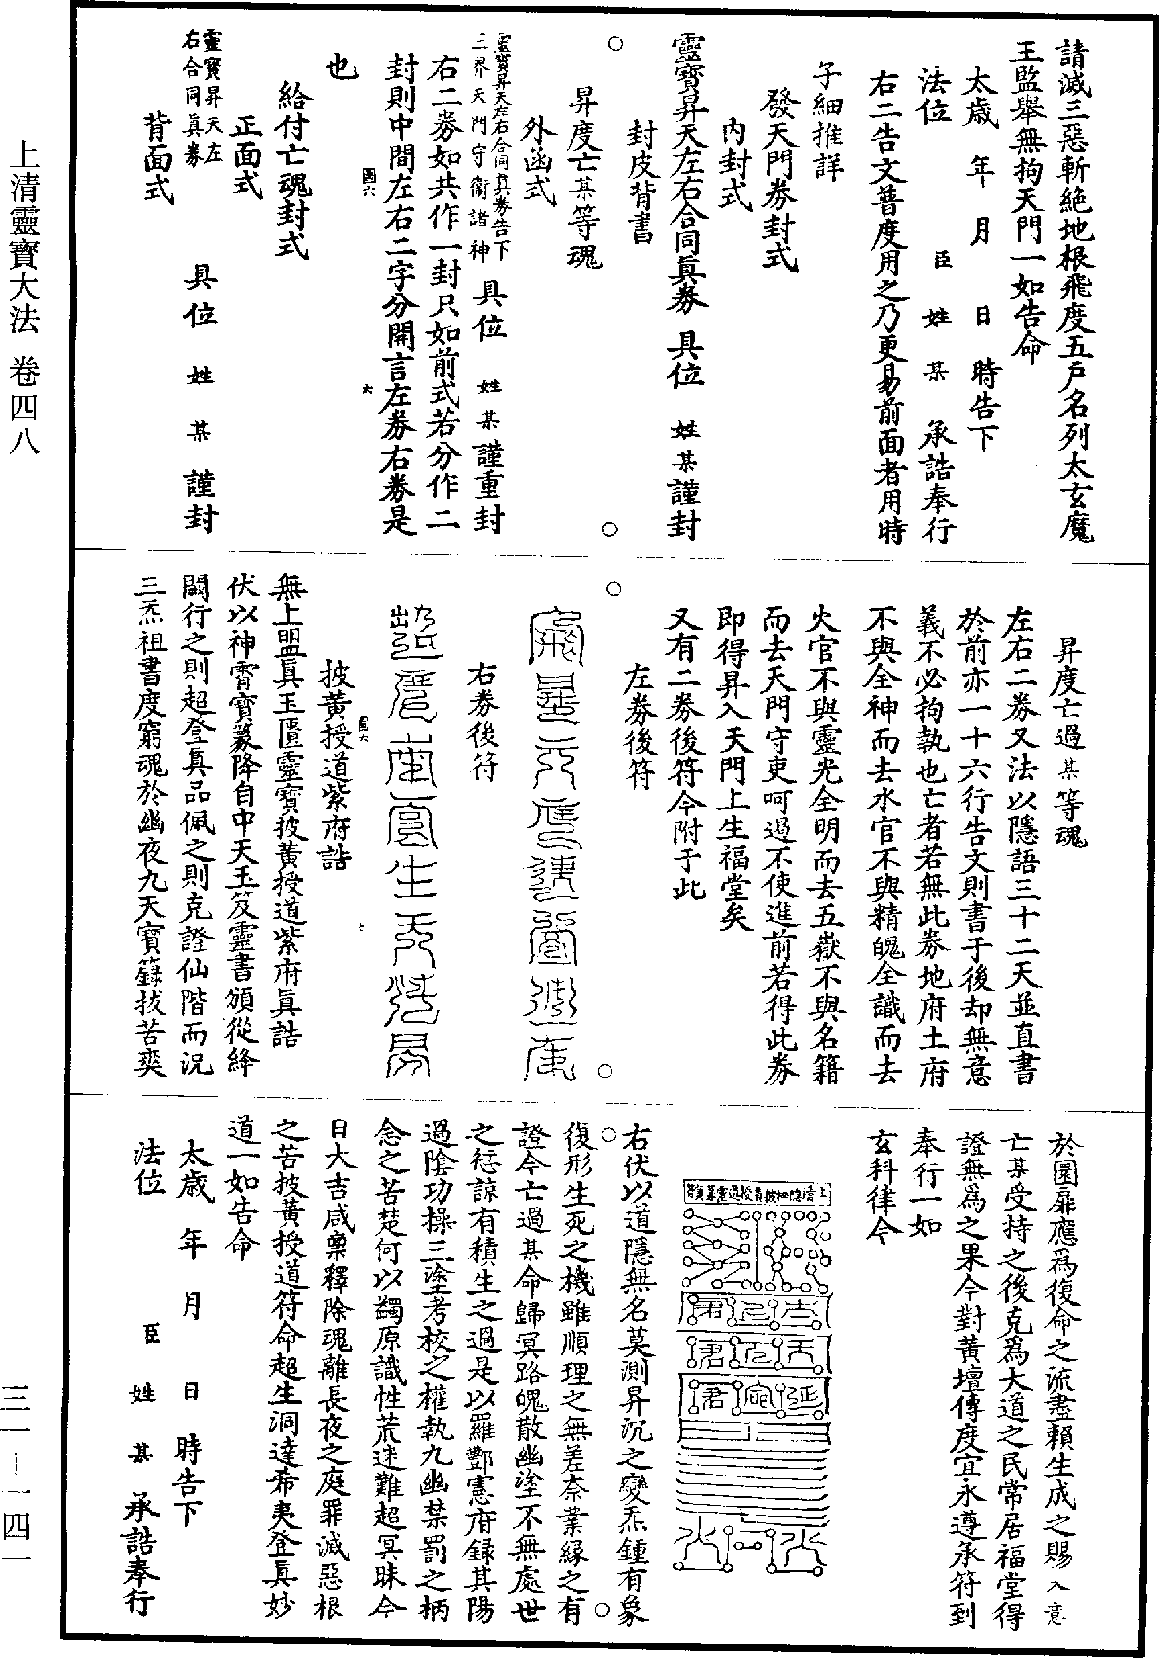 請滅三惡斬絶地根飛度五戶名列太玄魔
王監舉無拘天門一如告命
太歲　年　月　日　時告下
法位　臣　姓　某　承誥奉行
右二告文普度用之乃更易前面者用時
子細推詳
發天門券封式
內封式
靈寶昇天左右合同眞券　具位　姓某謹封
封皮背書
昇度亡某等魂
外函式
靈寶昇天左右合同眞券告下
三界天門守衞諸神　具位　姓某謹重封
右二券如共作一封只如前式若分作二
封則中間左右二字分開言左券右券是
也
給付亡魂封式
正面式
靈寶昇天左
右合同眞券　具位　姓　某　謹封
背面式
昇度亡過某等魂
左右二券又法以隱語三十二天並直書
於前亦一十六行告文則書于後却無意
義不必拘執也亡者若無此券地府土府
不與全神而去水官不與精魄全識而去
火官不與靈光全明而去五嶽不與名籍
而去天門守吏呵過不使進前若得此券
即得昇入天門上生福堂矣
又有二券後符今附于此
左券後符
右券後符
披黃授道紫府誥
無上盟眞玉匱靈寶披黃授道紫府眞誥
伏以神霄寶篆降自中天玉笈靈書頒從絳
闕行之則超登眞品佩之則克證仙階而況
三炁祖書度窮魂於幽夜九天寶籙拔苦爽
於圜扉應爲復命之流盡賴生成之賜入意
亡某受持之後克爲大道之民常居福堂得
證無爲之果今對黃壇傳度宜永遵承符到
奉行一如
玄科律令
右伏以道隱無名莫測昇沉之變炁鍾有象
復形生死之機雖順理之無差奈業緣之有
證今亡過某命歸冥路魄散幽塗不無處世
之愆諒有積生之過是以羅酆憲府錄其陽
過陰功操三塗考校之權執九幽禁罰之柄
念之苦楚何以蠲原識性荒迷難超冥昧今
日大吉咸稟釋除魂離長夜之庭罪滅惡根
之苦披黃授道符命超生洞達希夷登眞妙
道一如告命
太歲　年　月　日　時告下
法位　臣　姓　某　承誥奉行
上清靈寶大法　卷四八
三一－一四一